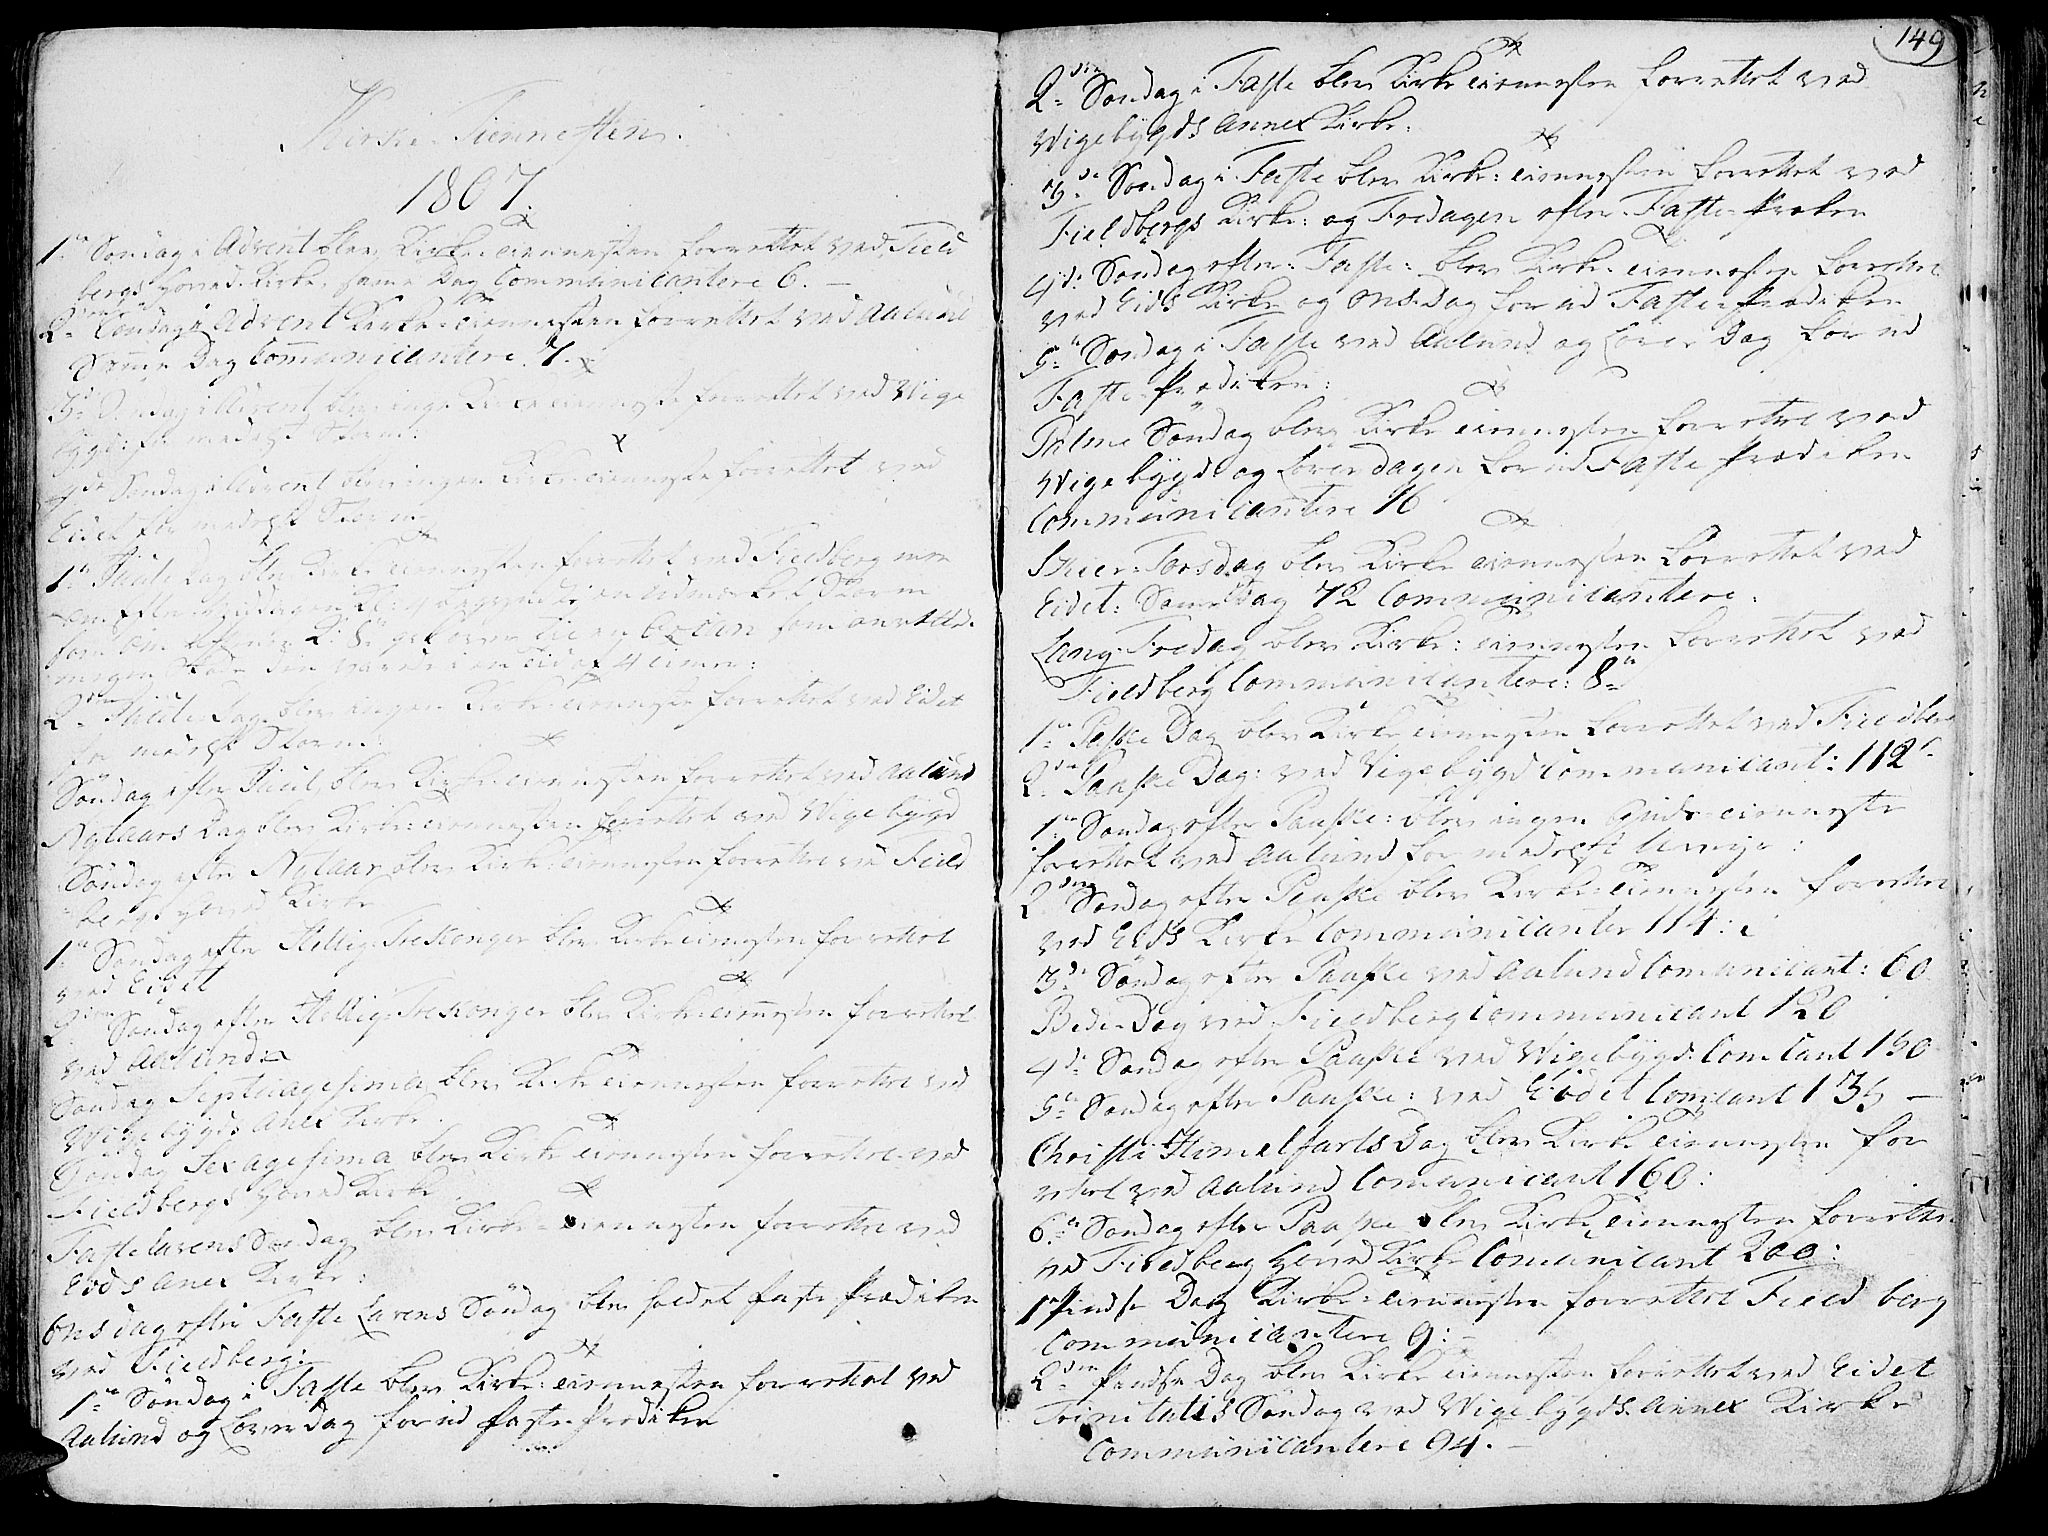 Kirke-Tiennesten.
1807.
1te Søndag i Advent blev Kirke-tiennesten forrettet ved Field
bergs hoved Kirke, samme Dag Communicantere 6. —
2den Søndag i Advent Kirke-tiennesten forrettet ved Aalund
Samme Dag Communicantere 7.
3de Søndag i Advent blev ingen Kirke tienneste forrettet ved Wige
bygd: for medelst Storm:
4de Søndag i Advent blev ingen Kirke-tienneste forrettet ved
Eidet for medelst Storm
1te Juule Dag blev Kirke tiennesten forrettet ved Fieldberg men
om Efter Middagen Kl: 4 begyndte en Storm
som om Aftenen Kl: 8 til en Orcan som anrettede
megen Skade den varede i en Tid af 4 timer:
2den Juule Dag blev ingen Kirke-tienneste forrettet ved Eidet
for medelst Storm:
Søndag efter Juul blev Kirke-tiennesten forrettet ved Aalund
Nytaars Dag blev Kirke-tiennesten forrettet ved Wigebygd
Søndag efter Nytaar blev Kirke-tiennesten forrettet ved Field
bergs hoved Kirke
1te Søndag efter Hellig-Trekonger blev Kirke tiennesten forrettet
ved Eidet
2den Søndag efter Hellig-Trekonger blev Kirke-tiennesten forrettet
ved Aalund:
Søndag Septuagesima blev Kirke tiennesten forrettet ved
Wigebygds Anex Kirke.
Søndag Sexagesima blev Kirke tiennesten forrettet ved
Fieldbergs hoved Kirke
Fastelavens Søndag blev Kirke-tiennesten forrettet ved
Eids Anex Kirke:
Onsdag efter Faste Lavens Søndag blev holdet faste Prædiken
ved Fieldberg:
1te Søndag i Faste blev Kirke-tiennesten forrettet ved
Aalund og Løverdag forud faste Prediken
149
2den Søndag i Faste blev Kirke tiennesten forrettet ved
Wigebygds Annex Kirke:
3de Søndag i Faste blev Kirke-tiennesten forrettet ved
Fieldbergs Kirke: og Fredagen efter Faste-Præken
4de Søndag efter Faste: blev Kirke-tiennesten forrettet
ved Eids Kirke og Onsdag forud Faste-Prediken
5te Søndag i Faste ved Aalund og Løver Dag forud
Faste-Prædiken:
Palme Søndag blev Kirke tiennesten forrettet ved
Wigebygd og Løverdagen forud Faste Prædiken
Communicantere 16
Skier-Torsdag blev Kirke tiennesten forrettet ved
Eidet: Samme Dag 72 Communicantere.
Lang-Fredag blev Kirke: tiennesten forrettet ved
Fieldberg Communicantere: 8te
1te Paaske Dag blev Kirke tiennesten forrettet ved Fieldberg
2den Paaske Dag: ved Wigebygd Communicant: 112
1te Søndag efter Paaske: blev ingen Guds-tienneste
forrettet ved Aalund for medelst Uveyr:
2den Søndag efter Paaske blev Kirke-tiennesten forrettet
ved Eids Kirke Communicanter 114:
3de Søndag efter Paaske ved Aalund Comunicant: 60
Bede-Dag ved Fieldberg Communicant 120
4de Søndag efter Paaske ved Wigebygd: Comcant 190
5te Søndag efter Paaske: ved Eidet Comcant 135 —
Christi Himelfarts Dag blev Kirke tiennesten for
rettet ved Aalund Comunicant 160:
6te Søndag efter Paaske blev Kirke tiennesten forrettet
ved Fieldberg hoved Kirke Comunicant 200:
1te Pindse Dag Kirke-tiennesten forrettet Fieldberg
Communicantere 9: —
2den Pindse Dag blev Kirke tiennesten forrettet ved Eidet
Trinitatis Søndag ved Wigebygds Annex Kirke
Communicantere 94. —